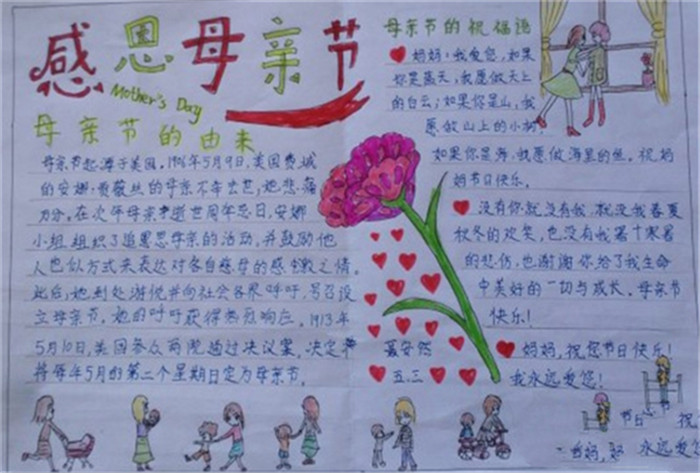 感恩母亲节
Mother's Day
母亲节的由来
母亲节起源于美国。1906年5月9日,美国费城
的安娜·贾薇丝的母亲不幸去世,她悲痛
万分。在次年母亲逝世周年忌日,安娜
小组组织了追思母亲的活动,并鼓励他
人也以方式来表达对各自慈母的感激之情。
此后,她到处游说并向社会各界呼吁,号召设
立母亲节。她的呼吁获得热烈响应。1913年
5月10日,美国参众两院通过决议案,决定
将每年5月的第二个星期日定为母亲节。
母亲节的祝福语
妈妈:我爱您,如果
你是蓝天,我愿做天上
的白云;如果你是山,我
愿做山上的小树,
如果你是海,我愿做海里的鱼。祝妈
妈节日快乐。
没有你就没有我,就没我春夏
秋冬的欢笑,也没有我寒十寒暑
的悲伤,也谢谢你给了我生命
中美好的一切与成长。母亲节
快乐!
妈妈,祝您节日快乐!
我永远爱您!
五.三
节日
祝
妈妈,
永远爱您!